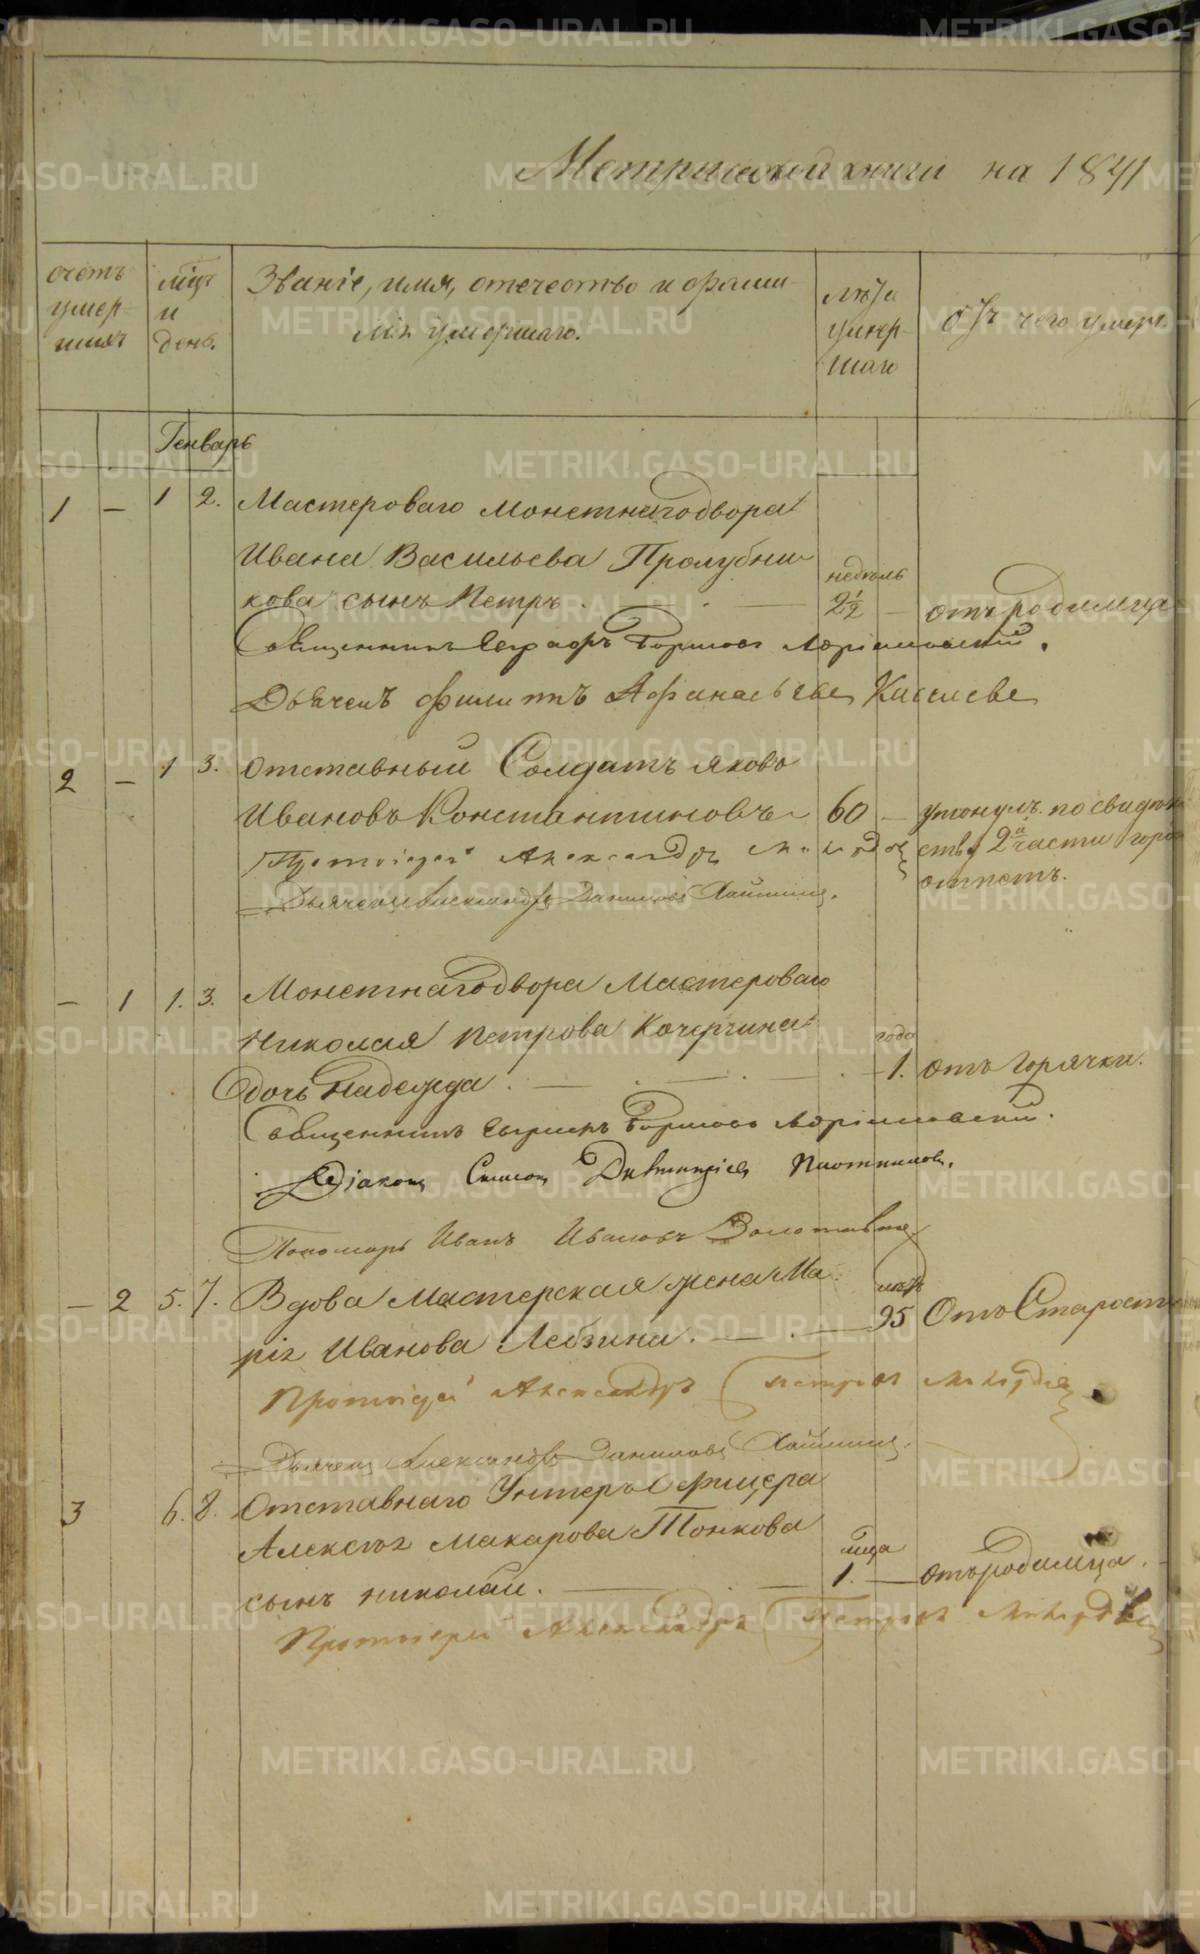 Метрической книги на 1841
счетъ умер- шихъ
мцъ и день.
Званіе, имя, отечество и фами-
лія умершаго.
лѣта умер- шаго
отъ чего умеръ
Генварь
1 — 1 2. Мастероваго монетнаго двора
Ивана Васильева Пролубни-
кова сынъ Петръ. недѣль 2½ — отъ родимца
Священникъ Евграфъ Борисовъ
Дьячекъ Филиппъ Афанасьевъ Киселевъ
2 — 1 3. Отставный Солдатъ Яковъ
Ивановъ Константиновъ 60 — утонулъ. по свидѣтель-
ству 2й части горо
отпетъ.
Протоіерей Александръ
Дьячекъ Александръ Даниловъ
— 1 1. 3. Монетнаго двора Мастероваго
Николая Петрова Кочергина
дочь Надежда. года 1. отъ горячки.
Священникъ Борисовъ
Діаконъ Симеонъ Димитріевъ Плотниковъ.
Пономарь Иванъ Ивановъ
— 2 5. 7. Вдова Мастерская жена Ма-
рія Иванова Лебзина. лѣтъ 95 Отъ Старости
Протоіерей Александръ Петровъ
Дьячекъ Александръ Даниловъ
3 6. 8. Отставнаго Унтеръ Офицера
Алексѣя Макарова Тонкова
сынъ Николай. мца 1. — отъ родимца.
Протоіерей Александръ Петровъ
METRIKI.GASO-URAL.RU